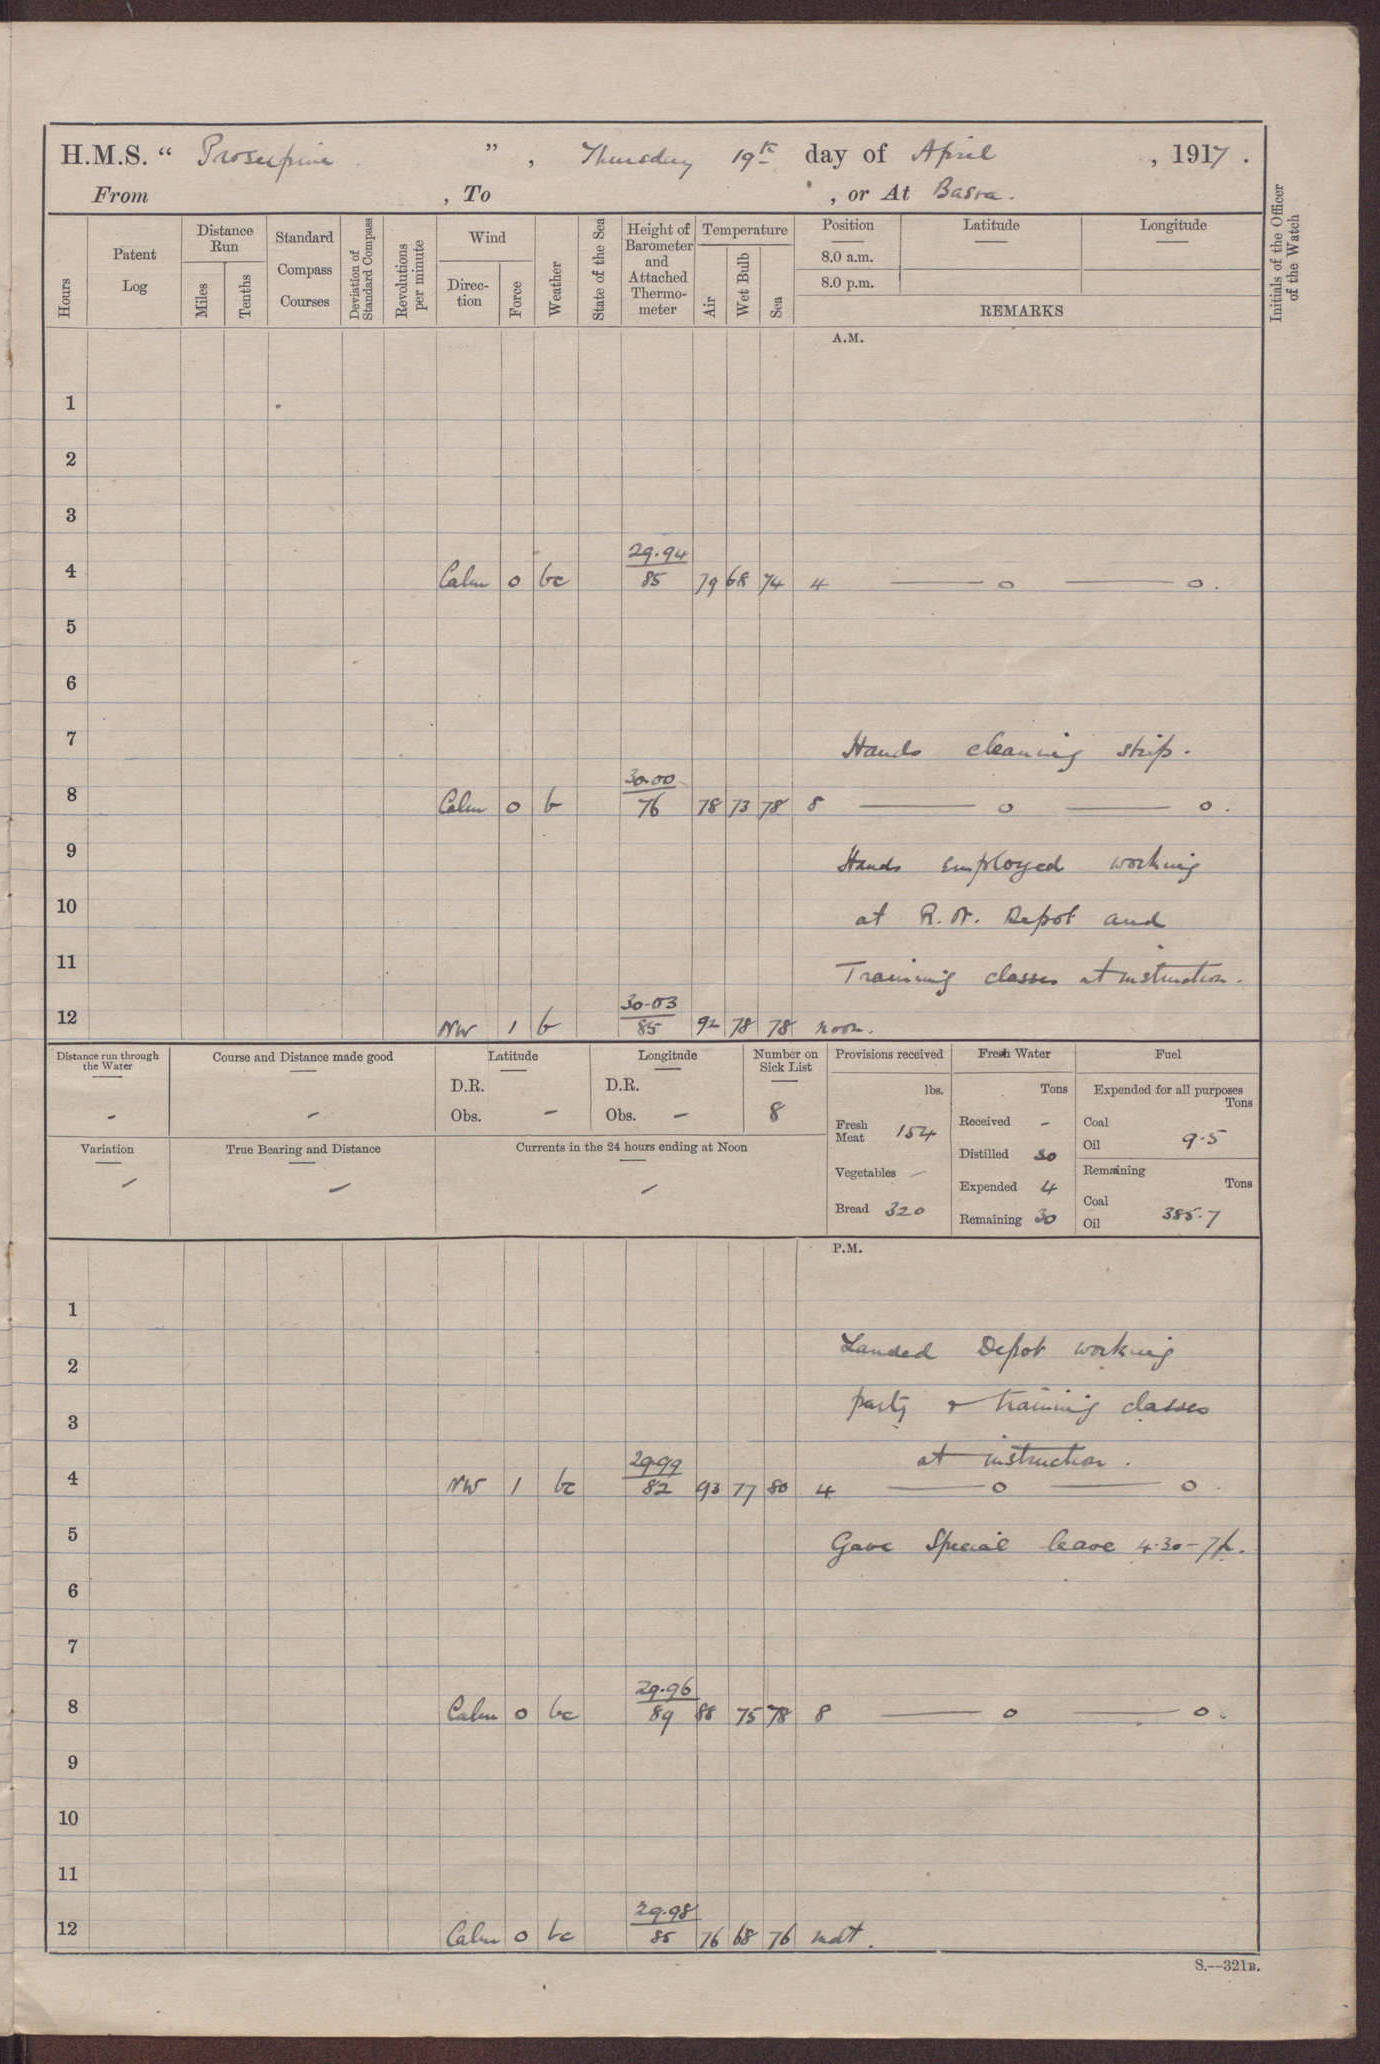 H.M.S. “ Proserpine ” , Thursday 19th day of April , 1917 .
From , To , or At Basra .
Hours
Patent Log
Distance Run
Miles
Tenths
Standard Compass Courses
Deviation of Standard Compass
Revolutions per minute
Wind
Direction
Force
Weather
State of the Sea
Height of Barometer and Attached Thermometer
Temperature
Air
Wet Bulb
Sea
Position
8.0 a.m.
8.0 p.m.
Latitude
Longitude
REMARKS
Initials of the Officer of the Watch
A.M.
1
2
3
29.94
4 Calm 0 bc 85 79 68 74 4 — 0 — 0 .
5
6
7 Hands cleaning ship.
30.00
8 Calm 0 b 76 78 73 78 8 — 0 — 0 .
9 Hands employed working
10 at R.N. Depot and
11 Training classes at instruction.
30.03
12 NW 1 b 85 92 78 78 noon.
Distance run through the Water
-
Course and Distance made good
-
Latitude
D.R.
Obs. -
Longitude
D.R.
Obs. -
Number on Sick List
8
Variation
-
True Bearing and Distance
-
Currents in the 24 hours ending at Noon
-
Provisions received
lbs.
Fresh Meat 154
Vegetables -
Bread 320
Fresh Water
Tons
Received -
Distilled 30
Expended 4
Remaining 30
Fuel
Expended for all purposes
Tons
Coal
Oil 9.5
Remaining
Tons
Coal
Oil 385.7
P.M.
1
2 Landed Depot working
3 party & training classes
at instruction.
29.99
4 NW 1 bc 82 93 77 80 4 — 0 — 0 .
5 Gave Special leave 4.30 - 7 p.
6
7
29.96
8 Calm 0 bc 89 88 75 78 8 — 0 — 0 .
9
10
11
29.98
12 Calm 0 bc 85 76 68 76 mdt.
S.—321B.